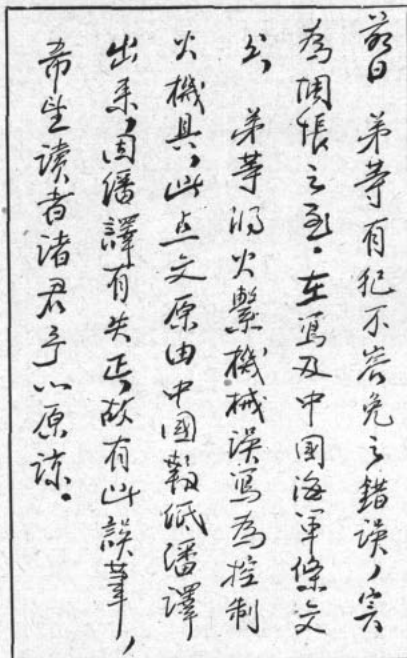 前日 弟等有犯不容免之錯誤，实
為惆悵之至。在寫及中国海軍條文
与，弟等将火擊機械误寫為控制
火機具，此点文原由中國報纸潘譯
出来，因潘譯有失正，故有此誤筆，
希望读者诸君予以原諒。